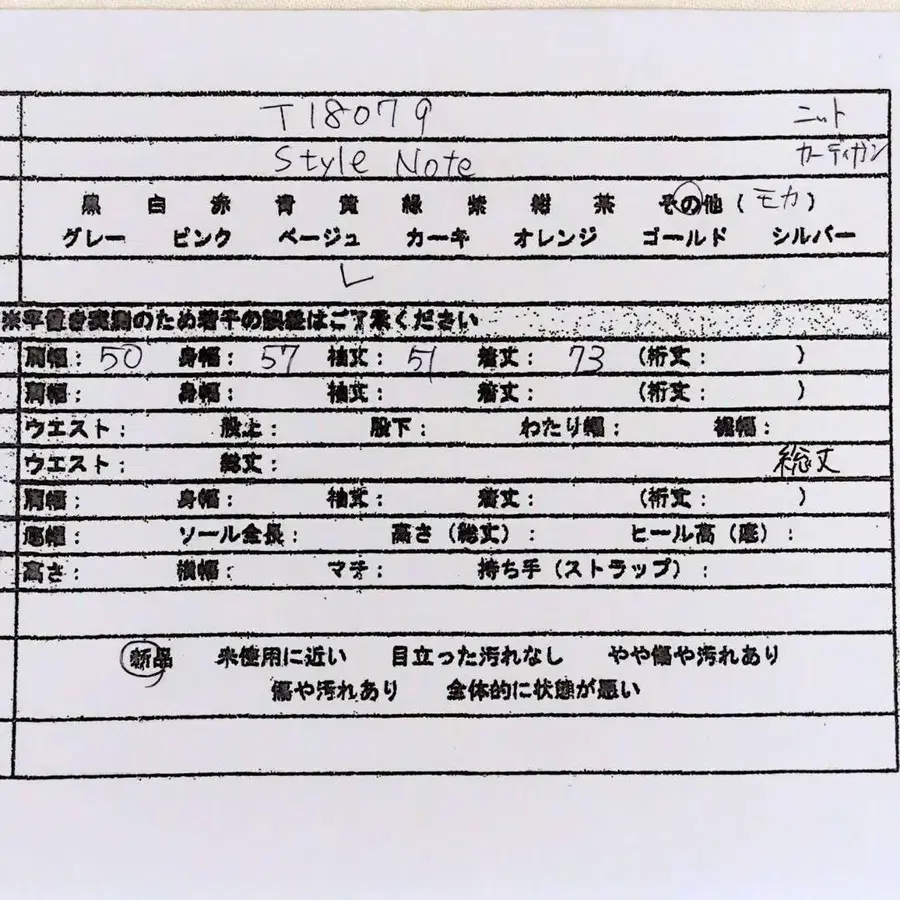 T18079 ニット
Style Note カーディガン
黒 白 赤 青 黄 緑 紫 紺 茶 その他 ( モカ )
グレー ピンク ベージュ カーキ オレンジ ゴールド シルバー
L
※平置き実測のため若干の誤差はご了承ください
肩幅: 50 身幅: 57 袖丈: 51 着丈: 73 (裄丈: )
肩幅: 身幅: 袖丈: 着丈: (裄丈: )
ウエスト: 股上: 股下: わたり幅: 裾幅:
ウエスト: 総丈: 総丈
肩幅: 身幅: 袖丈: 着丈: (裄丈: )
底幅: ソール全長: 高さ(総丈): ヒール高(底):
高さ: 横幅: マチ: 持ち手(ストラップ):
新品 未使用に近い 目立った汚れなし やや傷や汚れあり
傷や汚れあり 全体的に状態が悪い